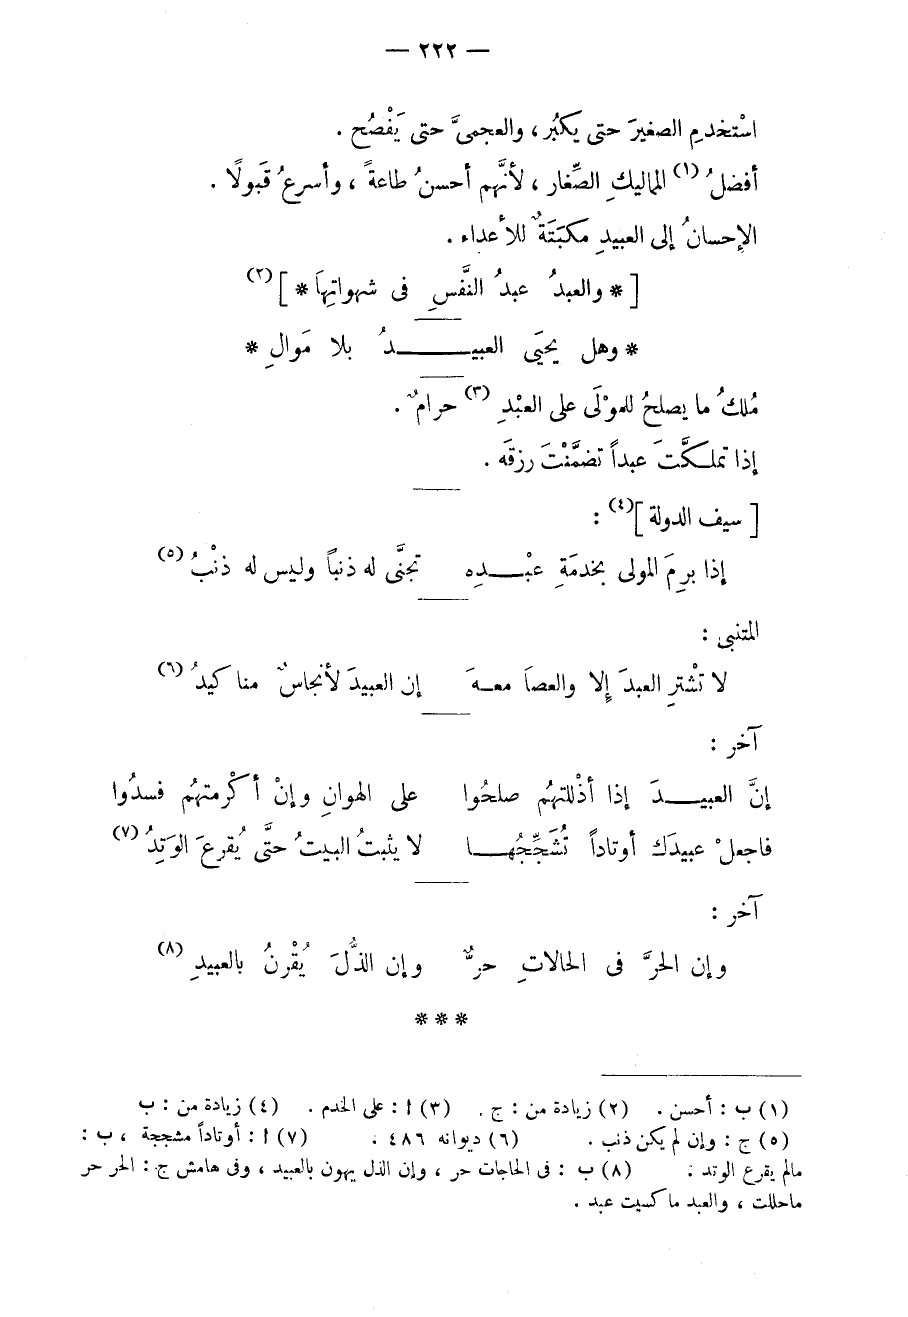 — ٢٢٢ —
اسْتخدمِ الصغيرَ حتى يكبُر ، والعجمىَّ حتى يَفْصُح .
أفضلُ (١) المماليكِ الصِّغار ، لأنَّهم أحسنُ طاعةً ، وأسرعُ قَبولًا .
الإحسانُ إلى العبيدِ مكبَتَةٌ للأعداء .
[ * والعبدُ عبدُ النَّفْسِ فى شهواتِهَا * ] (٢)
* وهل يحيَى العبيـــدُ بلا مَوالِ *
مُلكُ ما يصلحُ للموْلَى على العبْدِ (٣) حرامٌ .
إذا تملكَّتَ عبداً تضمَّنْتَ رزقَه .
[ سيف الدولة ] (٤) :
إذا برِمَ المولى بخدمَةِ عبْـــدِه تجنَّى له ذنباً وليس له ذنْبُ (٥)
المتنبى :
لا تشْترِ العبدَ إِلا والعصاَ معـهَ إن العبيدَ لأنجاسٌ مناكيدُ (٦)
آخر :
إنَّ العبيـــدَ إذا أذْللتهُم صلحُوا على الهوانِ وإنْ أكْرمتهُم فسدُوا
فاجعلْ عبيدَك أوتاداً تُشَجِّجُهـــا لا يثبتُ البيتُ حتَّى يُقرعَ الوَتِدُ (٧)
آخر :
وإن الحرَّ فى الحالاتِ حرٌّ وإن الذُّلَّ يُقْرنُ بالعبيدِ (٨)
* * *
(١) ب : أحسن . (٢) زيادة من : ج . (٣) ا : على الخدم . (٤) زيادة من : ب
(٥) ج : وإن لم يكن ذنب . (٦) ديوانه ٤٨٦ . (٧) ا : أوتاداً مشججة ، ب :
مالم يقرع الوتد . (٨) ب : فى الحاجات حر ، وإن الذل يهون بالعبيد ، وفى هامش ج : الحر حر
ماحللت ، والعبد ما كسيت عبد .